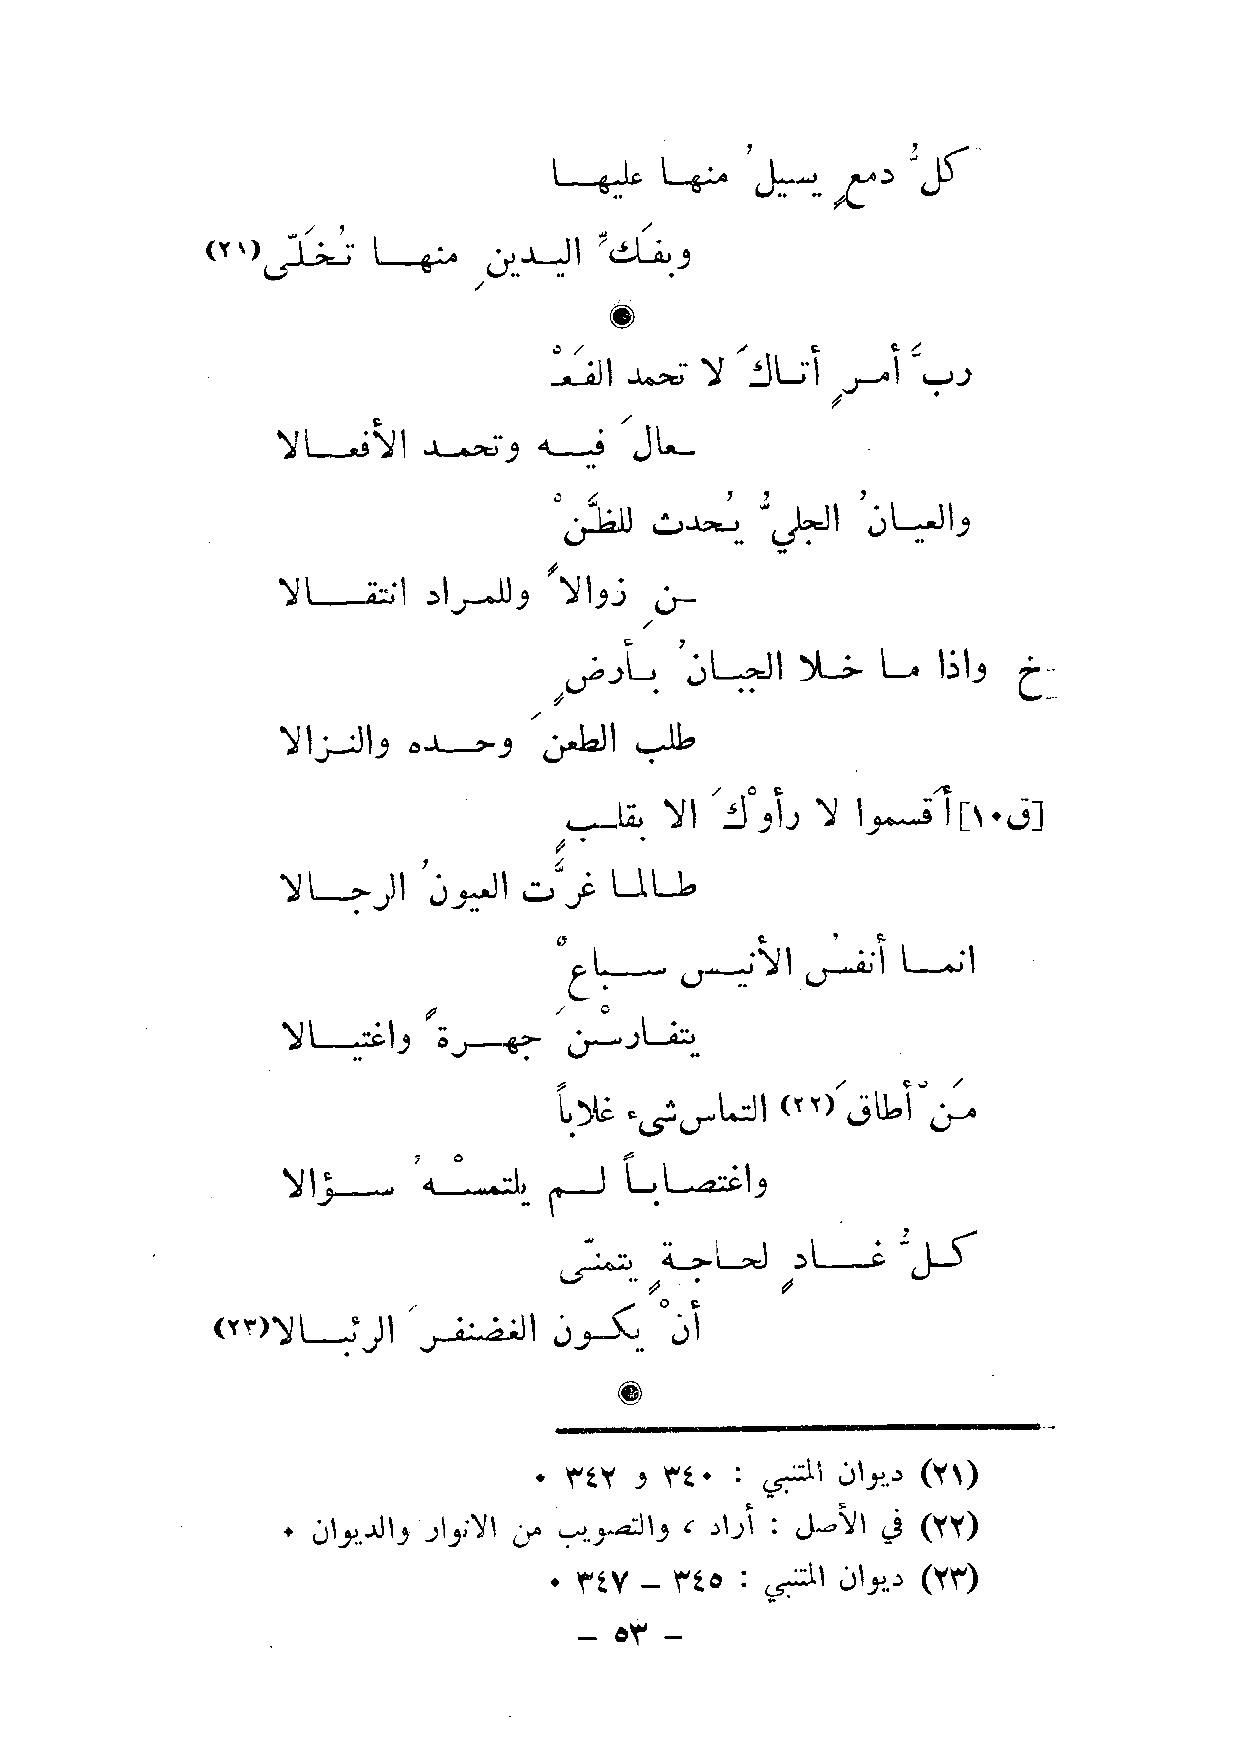 كلُّ دمعٍ يسيلُ منها عليها
وبفَكِّ اليدينِ منها تُخَلّى(٢١)
ربَّ أمرٍ أتاكَ لا تحمد الفَعْـ
ـعالَ فيه وتحمد الأفعالا
والعيانُ الجليُّ يُحدث للظَّنْ
ـنِ زوالاً وللمراد انتقالا
خ واذا ما خلا الجبانُ بأرضٍ
طلب الطعنَ وحده والنزالا
[ق١٠]أَقسموا لا رأوْكَ الا بقلبٍ
طالما غرَّت العيونُ الرجالا
انما أنفُس الأنيس سباعٌ
يتفارسْنَ جهرةً واغتيالا
مَنْ أطاقَ(٢٢) التماس شيء غلاباً
واغتصاباً لم يلتمسْهُ سؤالا
كلُّ غادٍ لحاجةٍ يتمنّى
أنْ يكون الغضنفرَ الرئبالا(٢٣)
(٢١) ديوان المتنبي : ٣٤٠ و ٣٤٢ ٠
(٢٢) في الأصل : أراد ، والتصويب من الانوار والديوان ٠
(٢٣) ديوان المتنبي : ٣٤٥ – ٣٤٧ ٠
– ٥٣ –